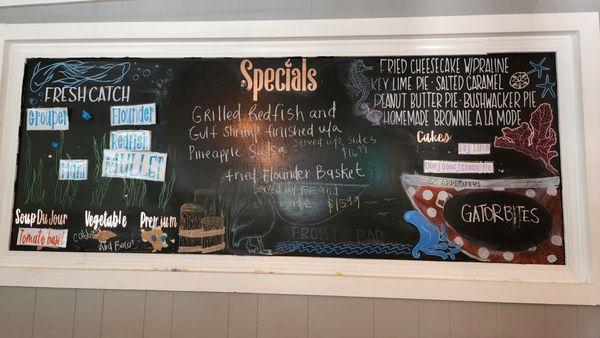 FRESH CATCH
Grouper
Flounder
Redfish
MULLET
Soup Du Jour
Tomato basil
Vegetable
Premium
Specials
Grilled Redfish and
Gulf Shrimp finished w/a
Pineapple Salsa Served w/2 Sides
$16.99
Fried Flounder Basket
Served w/ FF and
$15.99
FROM THE BAR
FRIED CHEESECAKE W/PRALINE
KEY LIME PIE · SALTED CARAMEL
PEANUT BUTTER PIE · BUSHWACKER PIE
HOMEMADE BROWNIE A LA MODE
Cakes
APPETIZERS
GATOR BITES